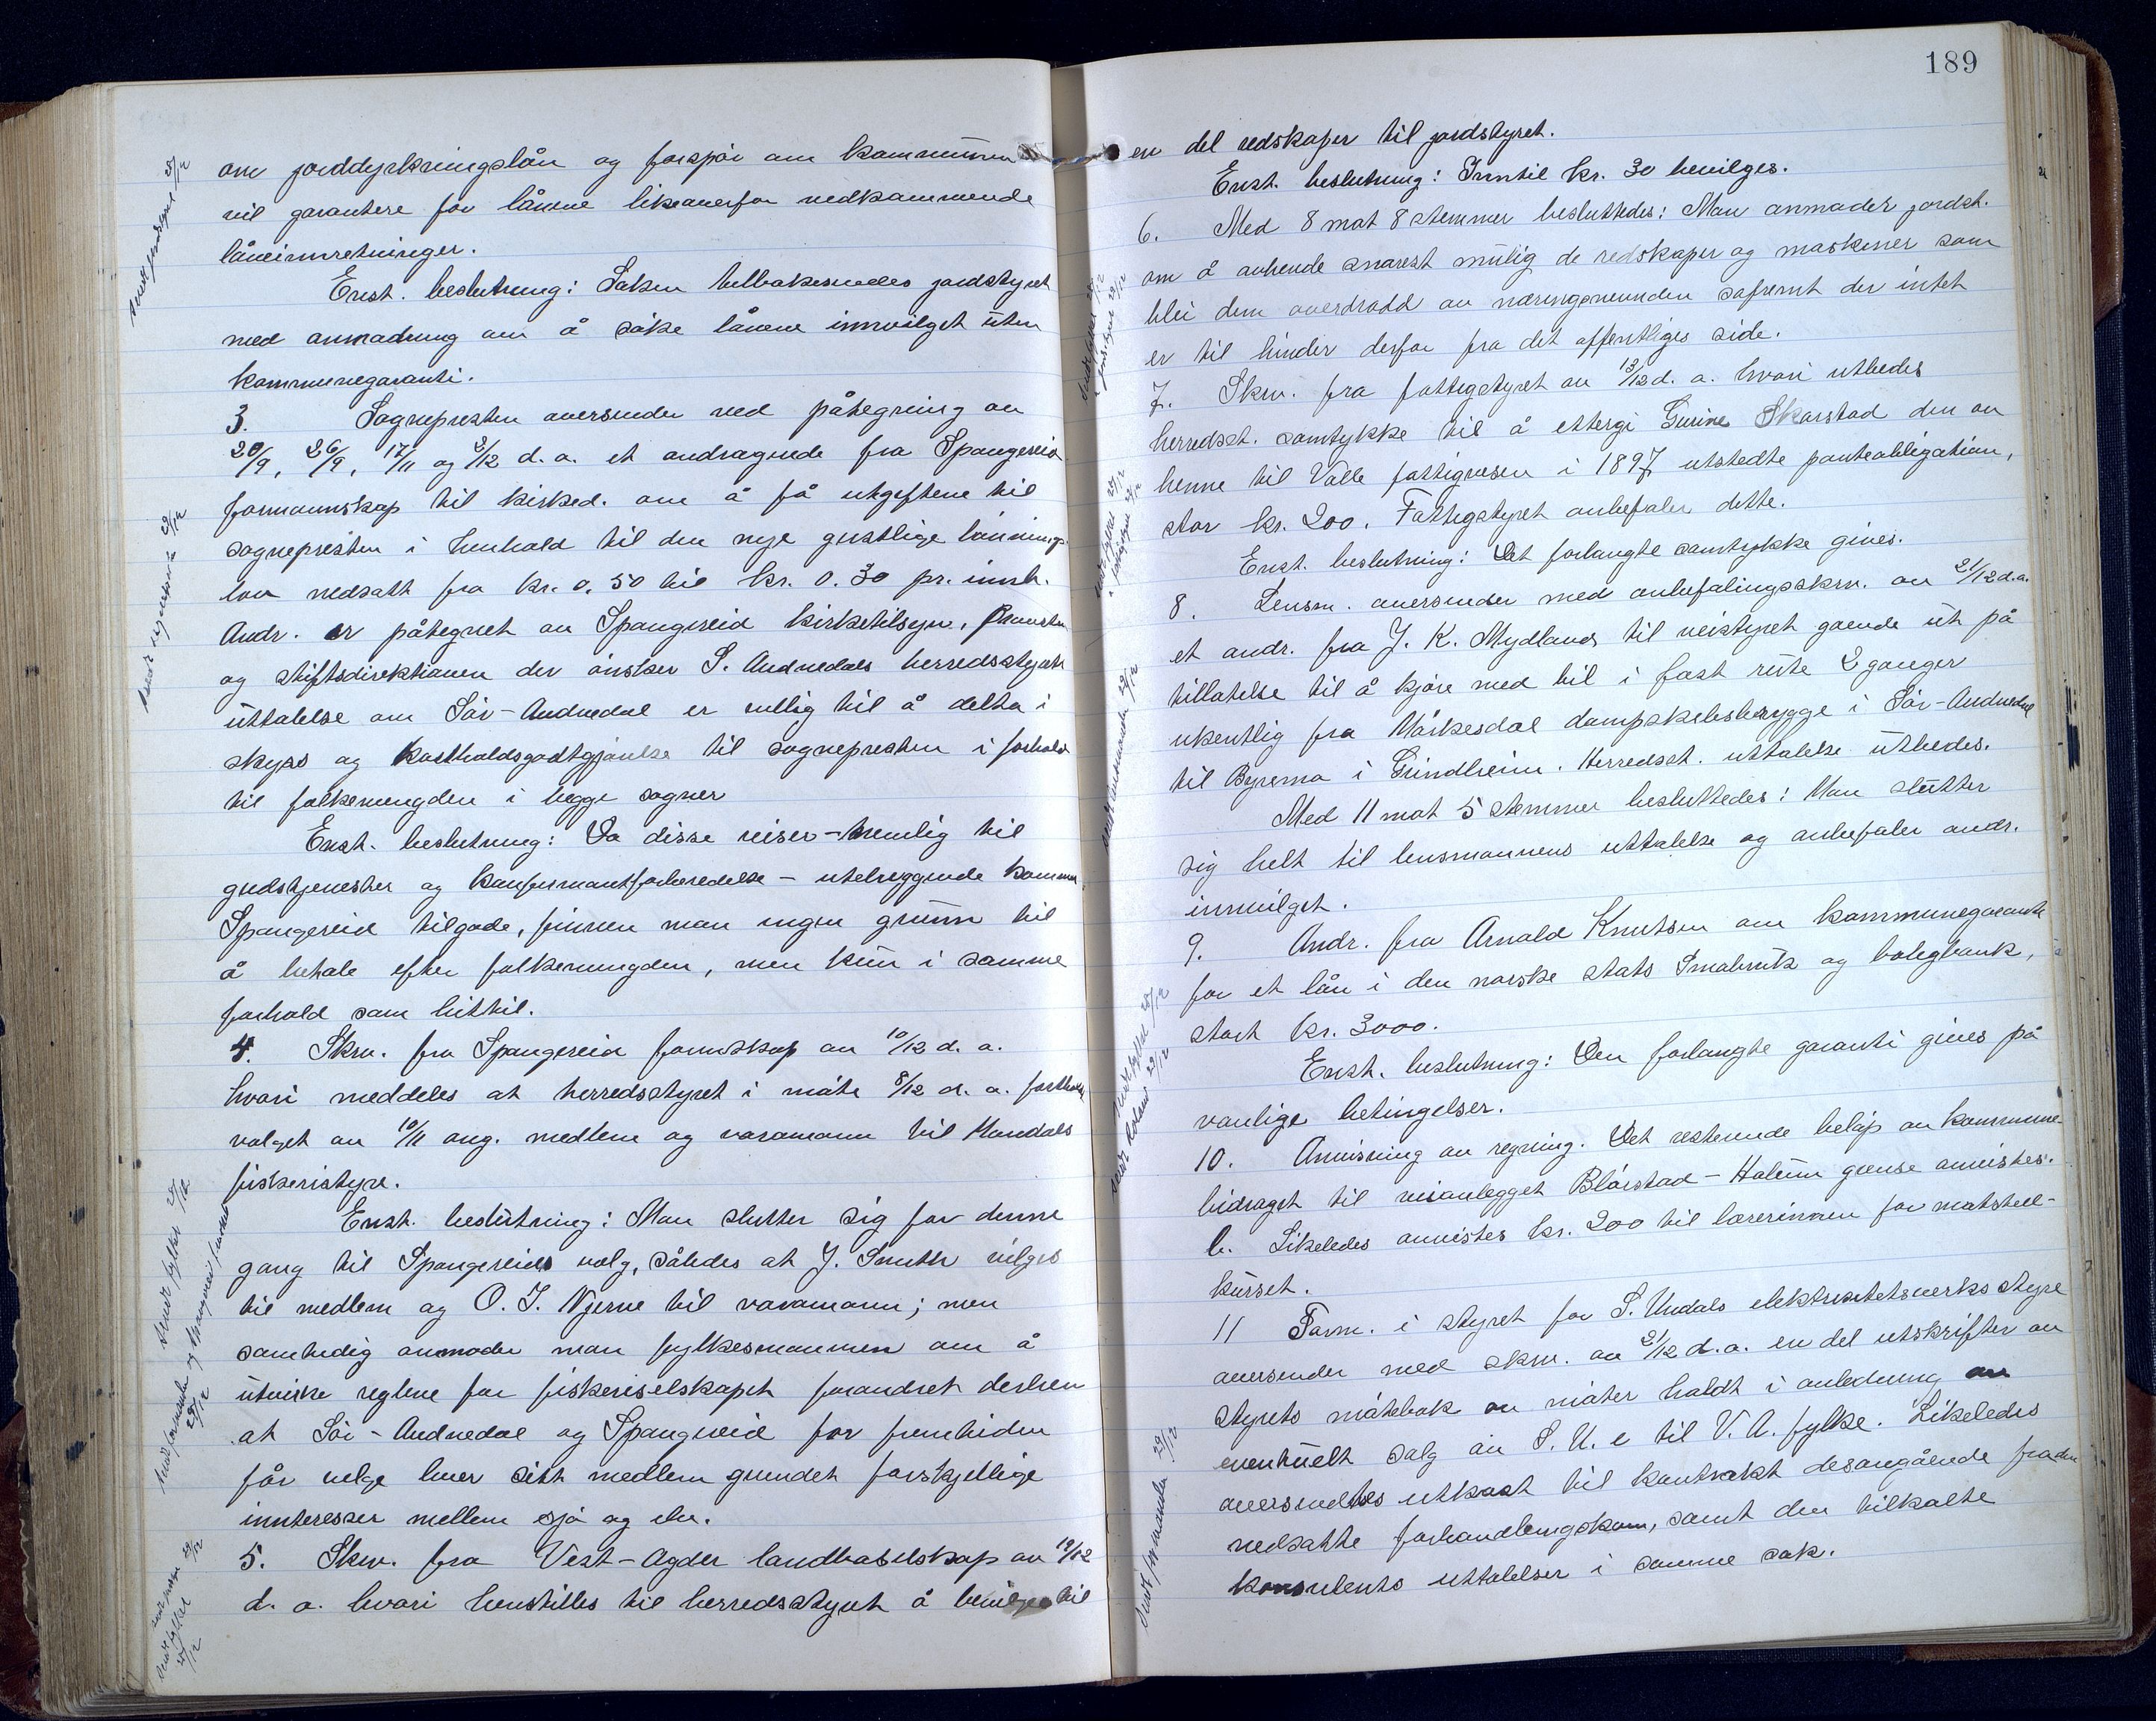 om jorddyrkningslån og forspør om kommunen
vil garantere for lånene likeoverfor vedkommende
låneinnretninger.
Enst. beslutning: Saken tilbakesendes jordstyret
med anmodning om å søke lånene innvilget uten
kommunegaranti.
3. Sognepresten oversender med påtegning av
20/9, 26/9, 17/11 og 2/12 d. a. et andragende fra Spangereid
formannskap til kirked. om å få utgiftene til
sognepresten i henhold til den nye gestlige lønnings-
lov nedsatt fra kr. 0.50 til kr. 0.30 pr. innb.
Andr. er påtegnet av Spangereid kirketilsyn, Prousten
og stiftsdirektionen der ønsker S. Audnedals herredsstyrets
uttalelse om Sør-Audnedal er villig til å delta i
skyss og kostholdsgodtgjørelse til sognepresten i forhold
til folkemengden i begge sogner
Enst. beslutning: Da disse reiser - nemlig til
gudstjenester og konfirmantforberedelse - utelukkende kommer
Spangereid tilgode, finner man ingen grunn til
å betale efter folkemengden, men kun i samme
forhold som hittil.
4. Skrv. fra Spangereid formskap av 10/12 d. a.
hvori meddeles at herredsstyret i møte 8/12 d. a. fortholdt
valget av 10/11 ang. medlem og varamann til Mandals
fiskeristyre.
Enst. beslutning: Man slutter sig for denne
gang til Spangereids valg, således at J. Smith velges
til medlem og O. J. Njerve til varamann; men
samtidig anmoder man fylkesmannen om å
utvirke reglene for fiskeriselskapet forandret derhen
at Sør-Audnedal og Spangereid for fremtiden
får velge hver sitt medlem grundet forskjellige
innteresser mellem sjø og elv.
5. Skrv. fra Vest-Agder landbuselskap av 12/12
d. a. hvori henstilles til herredsstyret å bevilge til
Sendt jordstyret 29/12
29/12
Sendt fylket 29/12
Sendt formander 29/12
Sendt fylket 29/12
189
en del redskaper til jordstyret.
Enst. beslutning: Inntil kr. 30 bevilges.
6. Med 8 mot 8 stemmer besluttedes: Man anmoder jordst.
om å avhende snarest mulig de redskaper og maskiner som
blei dem overdradd av næringsnevnden såfremt der intet
er til hinder derfor fra det offentliges side.
7. Skrv. fra fattigstyret av 13/12 d. a. hvori utbedes
herredsst. samtykke til å ettergi Gurine Skarstad den av
henne til Valle fattigvesen i 1897 utstedte panteobligation,
stor kr. 200. Fattigstyret anbefaler dette.
Enst. beslutning: Det forlangte samtykke gives.
8. Lensm. oversender med anbefalingsskrv. av 21/12 d.a.
et andr. fra J. K. Mydland til veistyret gående ut på
tillatelse til å kjøre med bil i fast rute 2 ganger
ukentlig fra Høikesdal dampskibsbrygge i Sør-Audnedal
til Byremo i Grindheim. Herredsst. uttalelse utbedes.
Med 11 mot 5 stemmer besluttedes: Man slutter
sig helt til lensmannens uttalelse og anbefaler andr.
innvilget.
9. Andr. fra Arnald Knutsen om kommunegaranti
for et lån i den norske stats Småbruk og boligbank,
stort kr. 3000.
Enst. beslutning: Den forlangte garanti gives på
vanlige betingelser.
10. Anvisning av regning. Det resterende beløp av kommune-
bidraget til veianlegget Bløistad - Halum grense anvistes.
b. Likeledes anvistes kr. 200 til lærerinnen for matstell-
kurset.
11 Form. i styret for S. Undals elektrisitetsverks styre
oversender med skrv. av 21/12 d. a. en del utskrifter av
styrets møtebok av møter holdt i anledning av
eventuelt salg av S. U. e til V. A. fylke. Likeledes
oversendtes utkast til kontrakt desangående fra den
nedsatte forhandlingskom, samt den tilkalte
konsulents uttalelser i samme sak.
Sendt lensmannen 29/12
Sendt fylket 29/12
Sendt formander 29/12